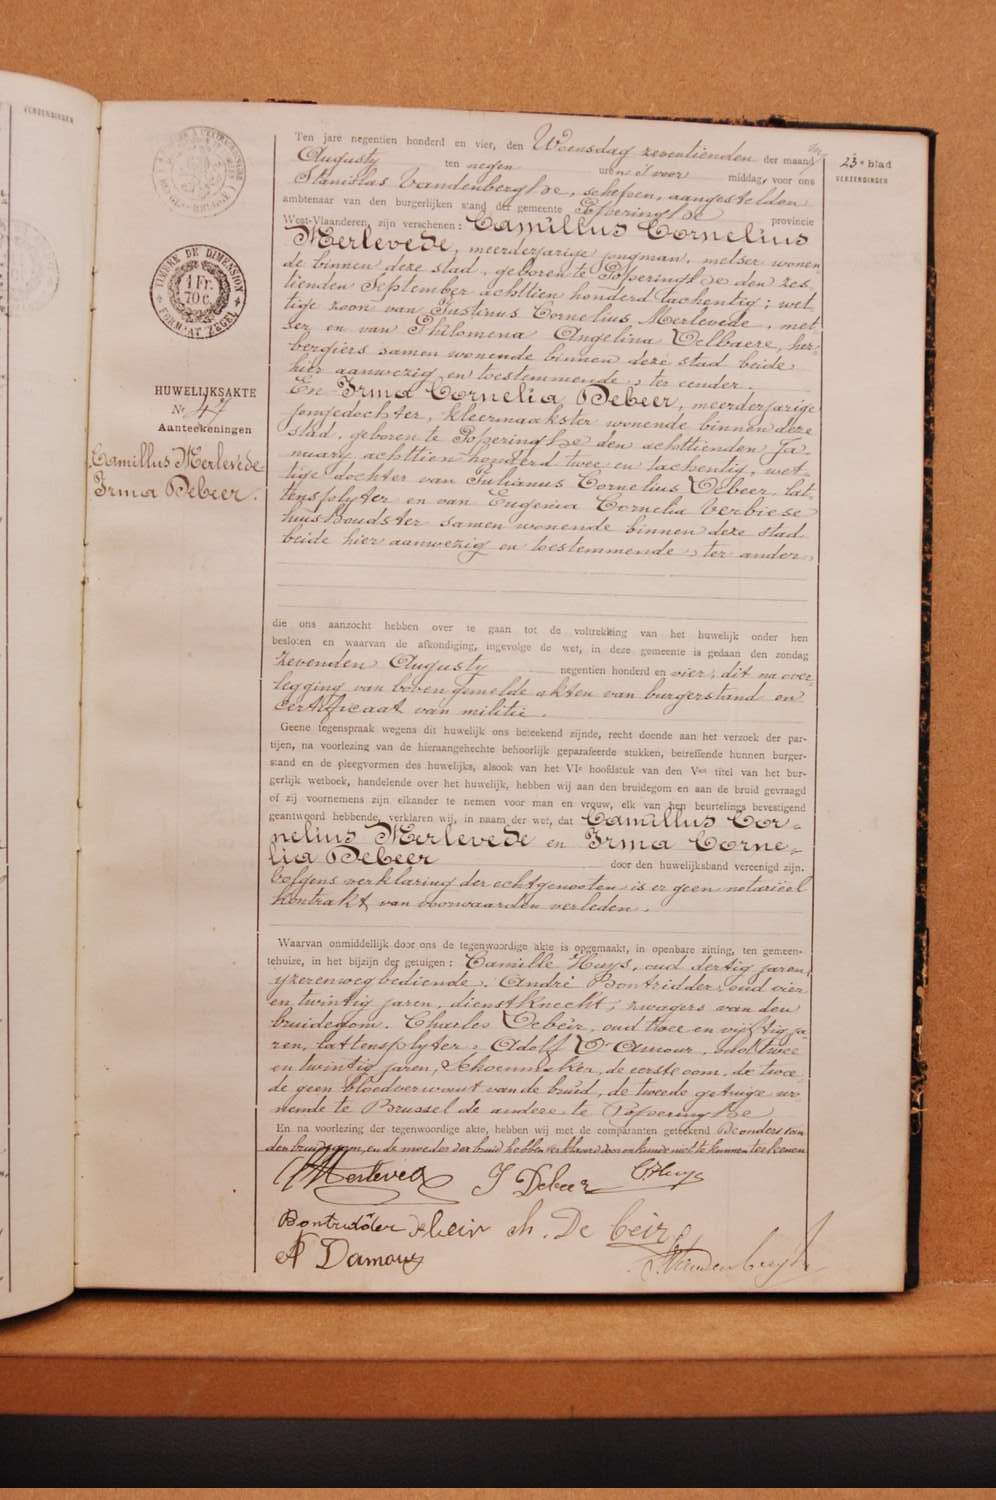 VERZENDINGEN
TIMBRE DE DIMENSION
1 Fr.
70 c.
FORMAAT ZEGEL
HUWELIJKSAKTE
Nr 47
Aanteekeningen
Camillus Merlevede
Irma Debeer.
23e blad
VERZENDINGEN
Ten jare negentien honderd en vier, den Woensdag zeventienden der maand
Augusty ten negen uren voor middag, voor ons
Stanislas Vandenberghe, schepen, aangestelden
ambtenaar van den burgerlijken stand der gemeente Poperinghe provincie
West-Vlaanderen, zijn verschenen: Camillus Cornelius
Merlevede, meerderjarige jongman, metser wonen-
de binnen deze stad, geboren te Poperinghe den zes-
tienden September achttien honderd tachentig; wet-
tige zoon van Justinus Cornelius Merlevede, met-
ser en van Philomena Angelina Delbaere, her-
bergiers samen wonende binnen deze stad beide
hier aanwezig en toestemmende, ter eender.
En Irma Cornelia Debeer, meerderjarige
jongedochter, kleermaakster wonende binnen deze
stad, geboren te Poperinghe den achttienden Ja-
nuary achttien honderd twee en tachentig, wet-
tige dochter van Julianus Cornelius Debeer, lat-
tensplyter en van Eugenia Cornelia Verbiese
huishoudster samen wonende binnen deze stad
beide hier aanwezig en toestemmende, ter ander,
die ons aanzocht hebben over te gaan tot de voltrekking van het huwelijk onder hen
besloten en waarvan de afkondiging, ingevolge de wet, in deze gemeente is gedaan den zondag
zevenden Augusty negentien honderd en vier, dit na over-
legging van boven gemelde akten van burgerstand en
certificaat van militie.
Geene tegenspraak wegens dit huwelijk ons beteekend zijnde, recht doende aan het verzoek der par-
tijen, na voorlezing van de hieraangehechte behoorlijk geparafeerde stukken, betreffende hunnen burger-
stand en de pleegvormen des huwelijks, alsook van het VIe hoofdstuk van den Ven titel van het bur-
gerlijk wetboek, handelende over het huwelijk, hebben wij aan den bruidegom en aan de bruid gevraagd
of zij voornemens zijn elkander te nemen voor man en vrouw, elk van hen beurtelings bevestigend
geantwoord hebbende, verklaren wij, in naam der wet, dat Camillus Cor-
nelius Merlevede en Irma Corne-
lia Debeer door den huwelijksband vereenigd zijn.
Volgens verklaring der echtgenooten is er geen notariëel
kontrakt van voorwaarden verleden.
Waarvan onmiddellijk door ons de tegenwoordige akte is opgemaakt, in openbare zitting, ten gemeen-
tehuize, in het bijzijn der getuigen: Camille Huys, oud dertig jaren,
yzerenwegbediende, André Bontridder, oud vier
en twintig jaren, dienstknecht, zwagers van den
bruidegom. Charles Debeir, oud twee en vijftig ja-
ren, lattensplyter, Adolf D'Amour, oud twee
en twintig jaren, schoenmaker, de eerste oom, de twee-
de geen bloedverwant van de bruid, de tweede getuige wo-
nende te Brussel de andere te Poperinghe
En na voorlezing der tegenwoordige akte, hebben wij met de comparanten geteekend De ouders van
den bruidegom, en de moeder der bruid hebben verklaard door onkunde niet te kunnen teekenen
C Merlevede I Debeer C Huys
Bontridder ch. De beir
A Damour S. Vandenberghe